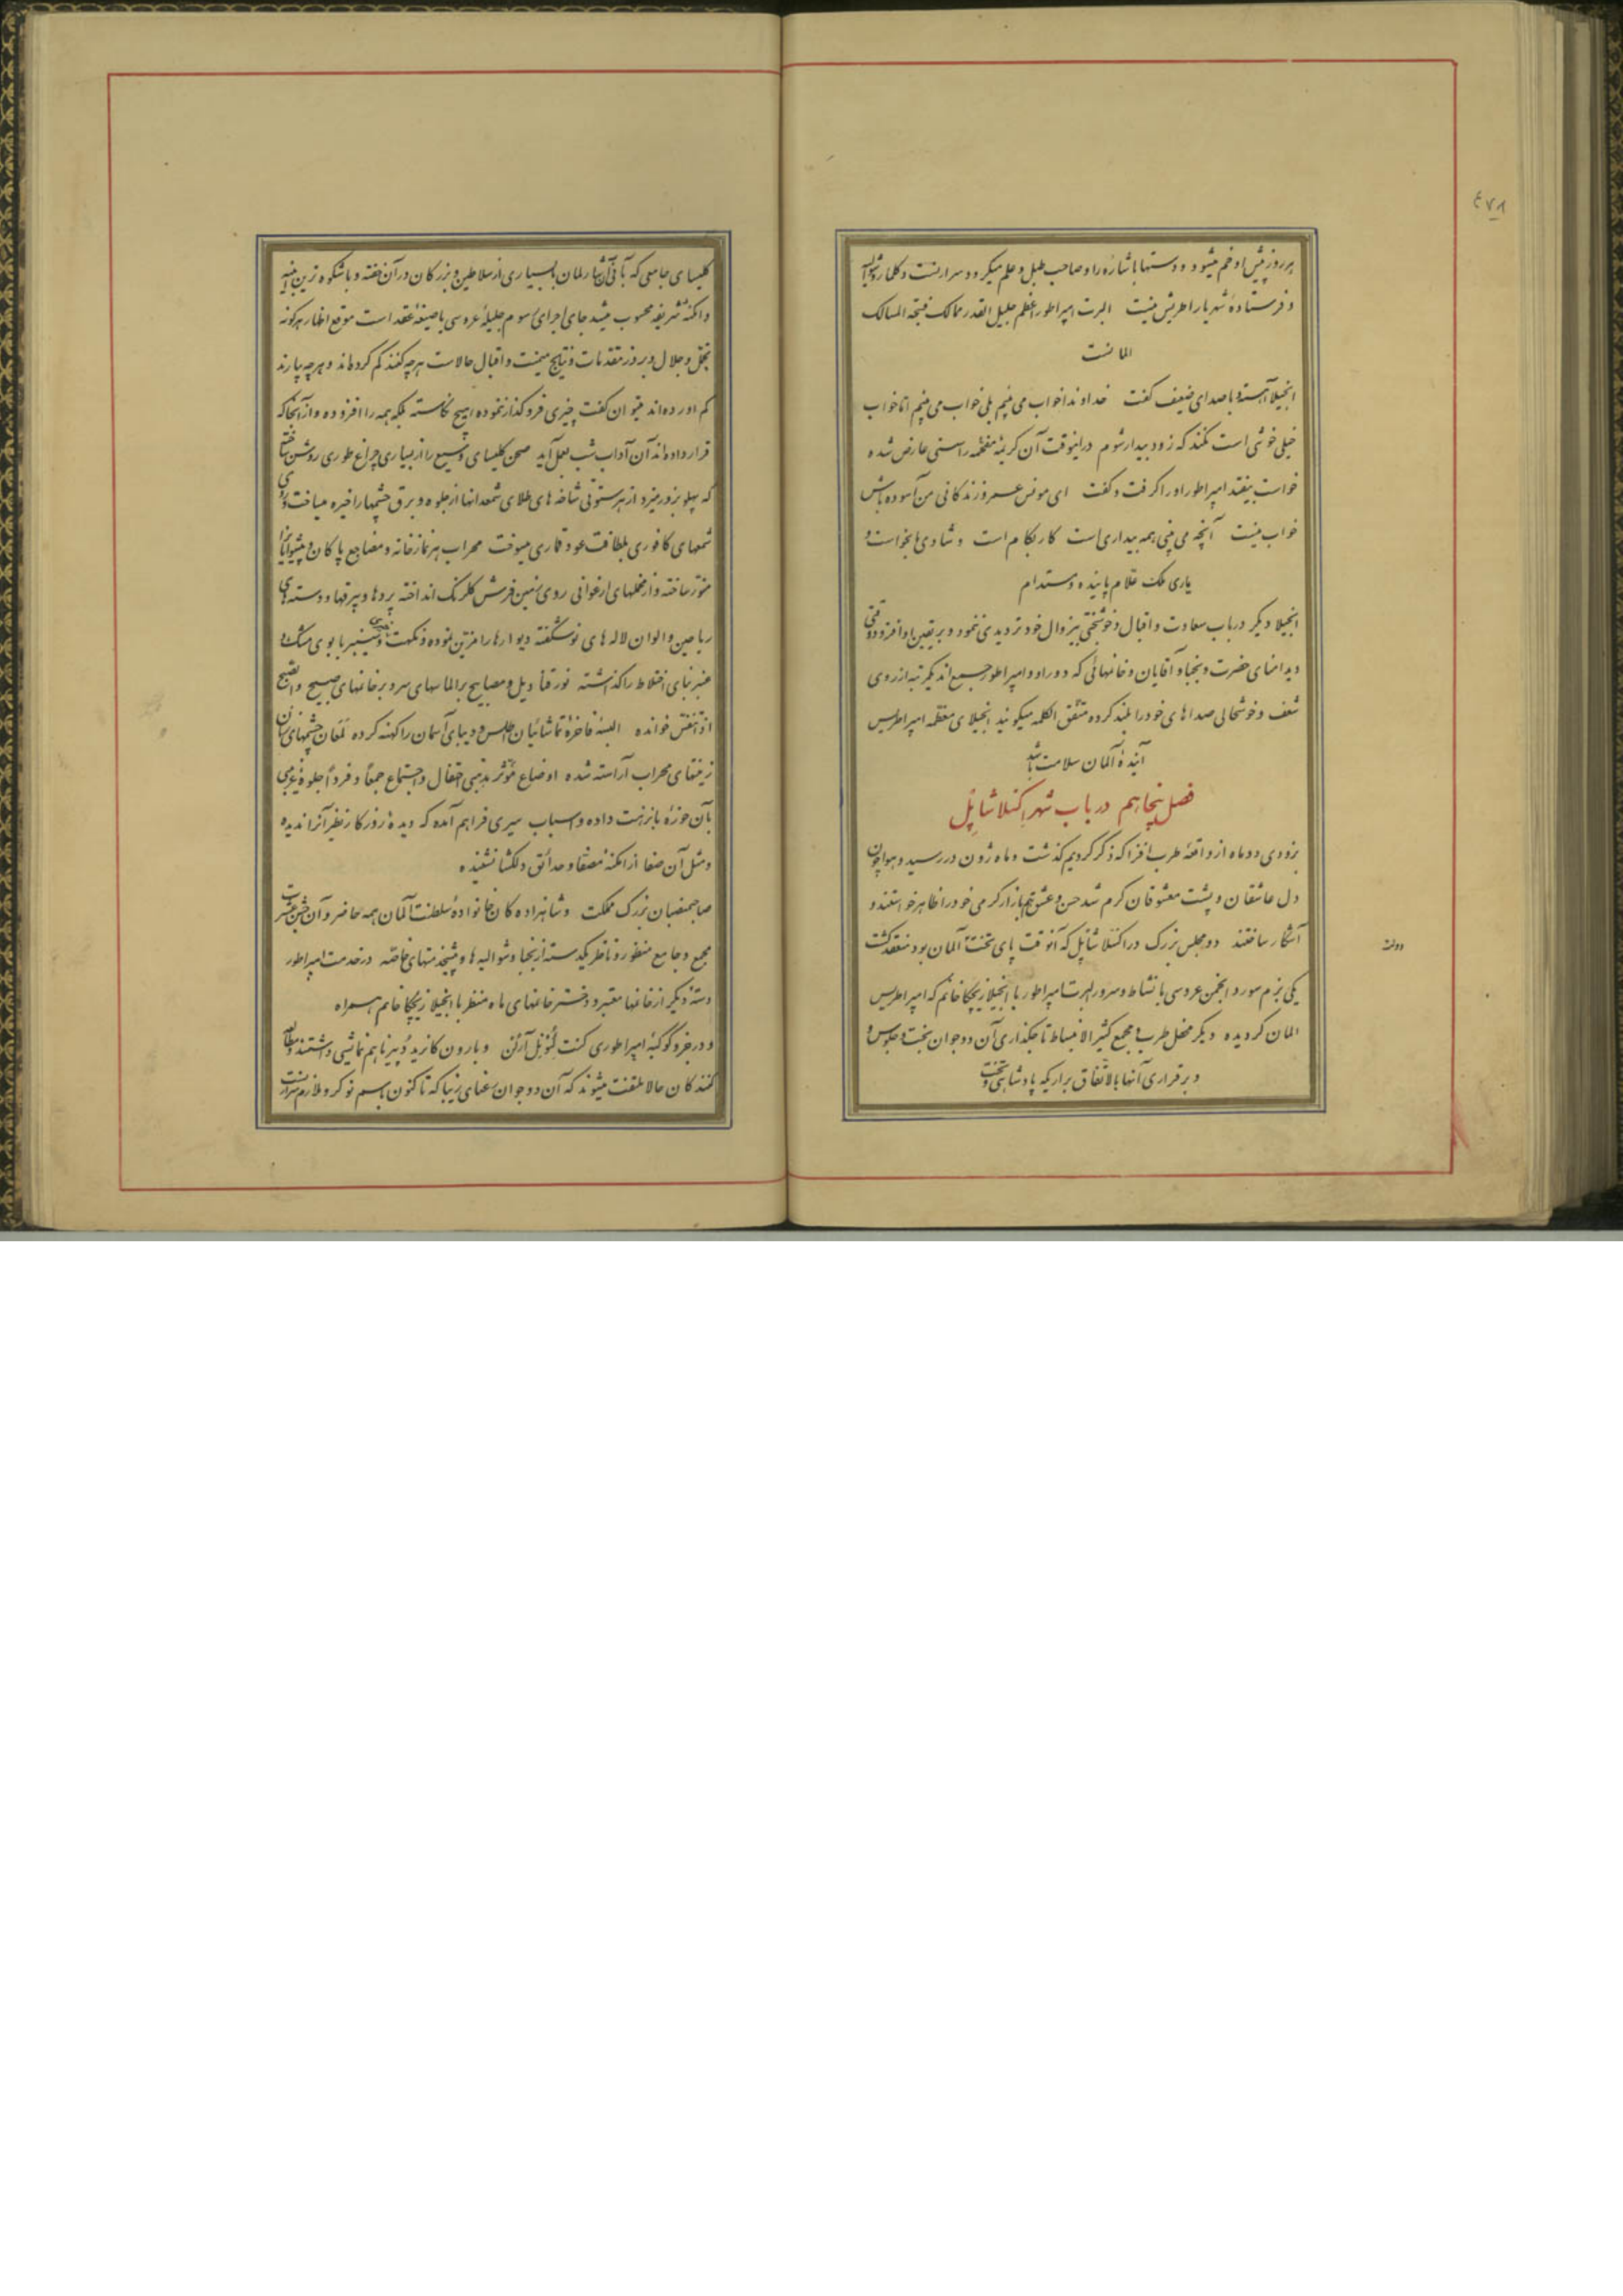 ٤٧٨
هر روز پیش او خم میشود و دستها باشاره او صاحب طبل و علم میگردد سرارنست دکلمار شوالیه
و فرستاده شهریار اطریش نیست البرت امپراطور اعظم جلیل القدر ممالک فتیحة المسالک
المانست
انجیلا آهسته و با صدای ضعیف گفت خداوندا خواب می بینم بلی خواب می بینم اما خواب
خیلی خوشی است نکند که زود بیدار شوم در اینوقت آن کریمه مفخمه را سستی عارض شده
خواست بیفتد امپراطور او را گرفت و گفت ای مونس عمر و زندگانی من آسوده باش
خواب نیست آنچه می بینی همه بیداری است کار بکام است و شادی بخواست و
یاری ملک علام پاینده و مستدام
انجیلا دیگر در باب سعادت و اقبال و خوشبختی بیزوال خود تردیدی ننمود و بر یقین او افزوده وقتی
دید امنای حضرت و نجبا و آقایان و خانمهائی که دور او و امپراطور جمع اند یکمرتبه از روی
شعف و خوشحالی صداهای خود را بلند کرده متفق الکلمه میگویند انجیلای معظمه امپراطریس
آینده آلمان سلامت باشد
فصل پنجاهم در باب شهر اکسلا شاپل
بزودی دو ماه از واقعه طرب افزا که ذکر کردیم گذشت و ماه ژون در رسید و هوا چون
دل عاشقان و پشت معشوقان گرم شد حسن و عشق هم بازار گرمی خود را ظاهر خواستند و
آشکار ساختند دو مجلس بزرگ در اکسلا شاپل که آنوقت پای تخت آلمان بود منعقد گشت
یکی بزم سور و انجمن عروسی با نشاط و سرور البرت امپراطور با انجیلا زیچکا خانم که امپراطریس
المان گردیده دیگر محفل طرب و مجمع کثیر الانبساط تاجگذاری آن دو جوان بخت و جلوس
و برقراری آنها بالاتفاق بر اریکه پادشاهی و تخت
دولت
کلیسای جامعی که بانی آن شارلمان بالبسیاری از سلاطین و بزرگان در آن خفته و باشکوه ترین ابنیه
و امکنه شریفه محسوب میشد جای اجرای رسوم جلیله عروسی با صیغه عقد است موقع اظهار هرگونه
تجمل و جلال و بروز مقدمات و نتایج میمنت و اقبال حالاست هرچه کنند کم کرده اند و هرچه بیارند
کم آورده اند میتوان گفت چیزی فروگذار ننموده و هیچ نکاسته بلکه همه را افزوده و از آنجا که
قرار داده اند آن آداب شب بعمل آید صحن کلیسای وسیع را از بسیاری چراغ طوری روشن ساخته
که پهلو بروز میزد از هر ستونی شاخه های طلای شمعدانها از جلوه و برق چشمها را خیره میساخت
شمعهای کافوری بلطافت عود قماری میسوخت محراب هر نمازخانه و مضاجع پاکان و پیشوایان را
منور ساخته و از مخملهای ارغوانی روی زمین فرش گلرنگ انداخته پردها و بیرقها و دسته های
ریاحین و الوان لاله های نو شکفته دیوارها را مزین نموده و نکهت سیسنبر با بوی مشک و
عنبر بنای اختلاط را گذاشته نور قنادیل و مصابیح بر الماسهای سر و بر خانمهای صبیح
اذا تنفس خوانده البسه فاخره تماشائیان اطلس و دیبای آسمان را کهنه کرده لمعان چشمهای شان
زینتهای محراب آراسته شده اوضاع مؤثر مذهبی احتفال و اجتماع جمعاً و فرداً جلوه غریبی
بآن حوزه با نزهت داده و اسباب سیری فراهم آمده که دیده روزگار نظیر آنرا ندیده
و مثل آن صفا از امکنه مصفا و حدائق دلگشا نشنیده
صاحمنصبان بزرگ مملکت و شاهزادگان خانواده سلطنت آلمان همه حاضر و آن جشن عشرت
مجمع و جامع منظور و ناظر یکدسته از نجبا و شوالیه ها و پیشخدمتهای خاصه در خدمت امپراطور
دسته دیگر از خانمها معتبر و دختر خانمهای ماه منظر با انجیلا زیچکا خانم همراه
و در جزو کوکبه امپراطوری کنت لئونل آرلن و بارون کانرید دبیرنا هم نمایشی داشتند
کنندگان حالا ملتفت میشوند که آن دو جوان رعنای زیبا که تا کنون باسم نوکر و ملازم سرارنست